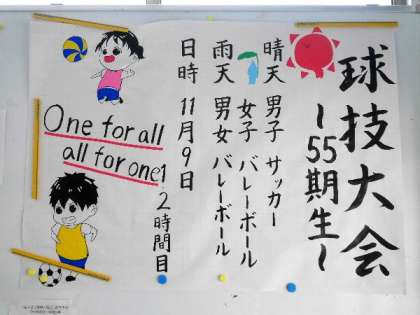 球技大会
～55期生～
晴天 男子 サッカー
女子 バレーボール
雨天 男女 バレーボール
日時 11月9日
1.2時間目
One for all
all for one